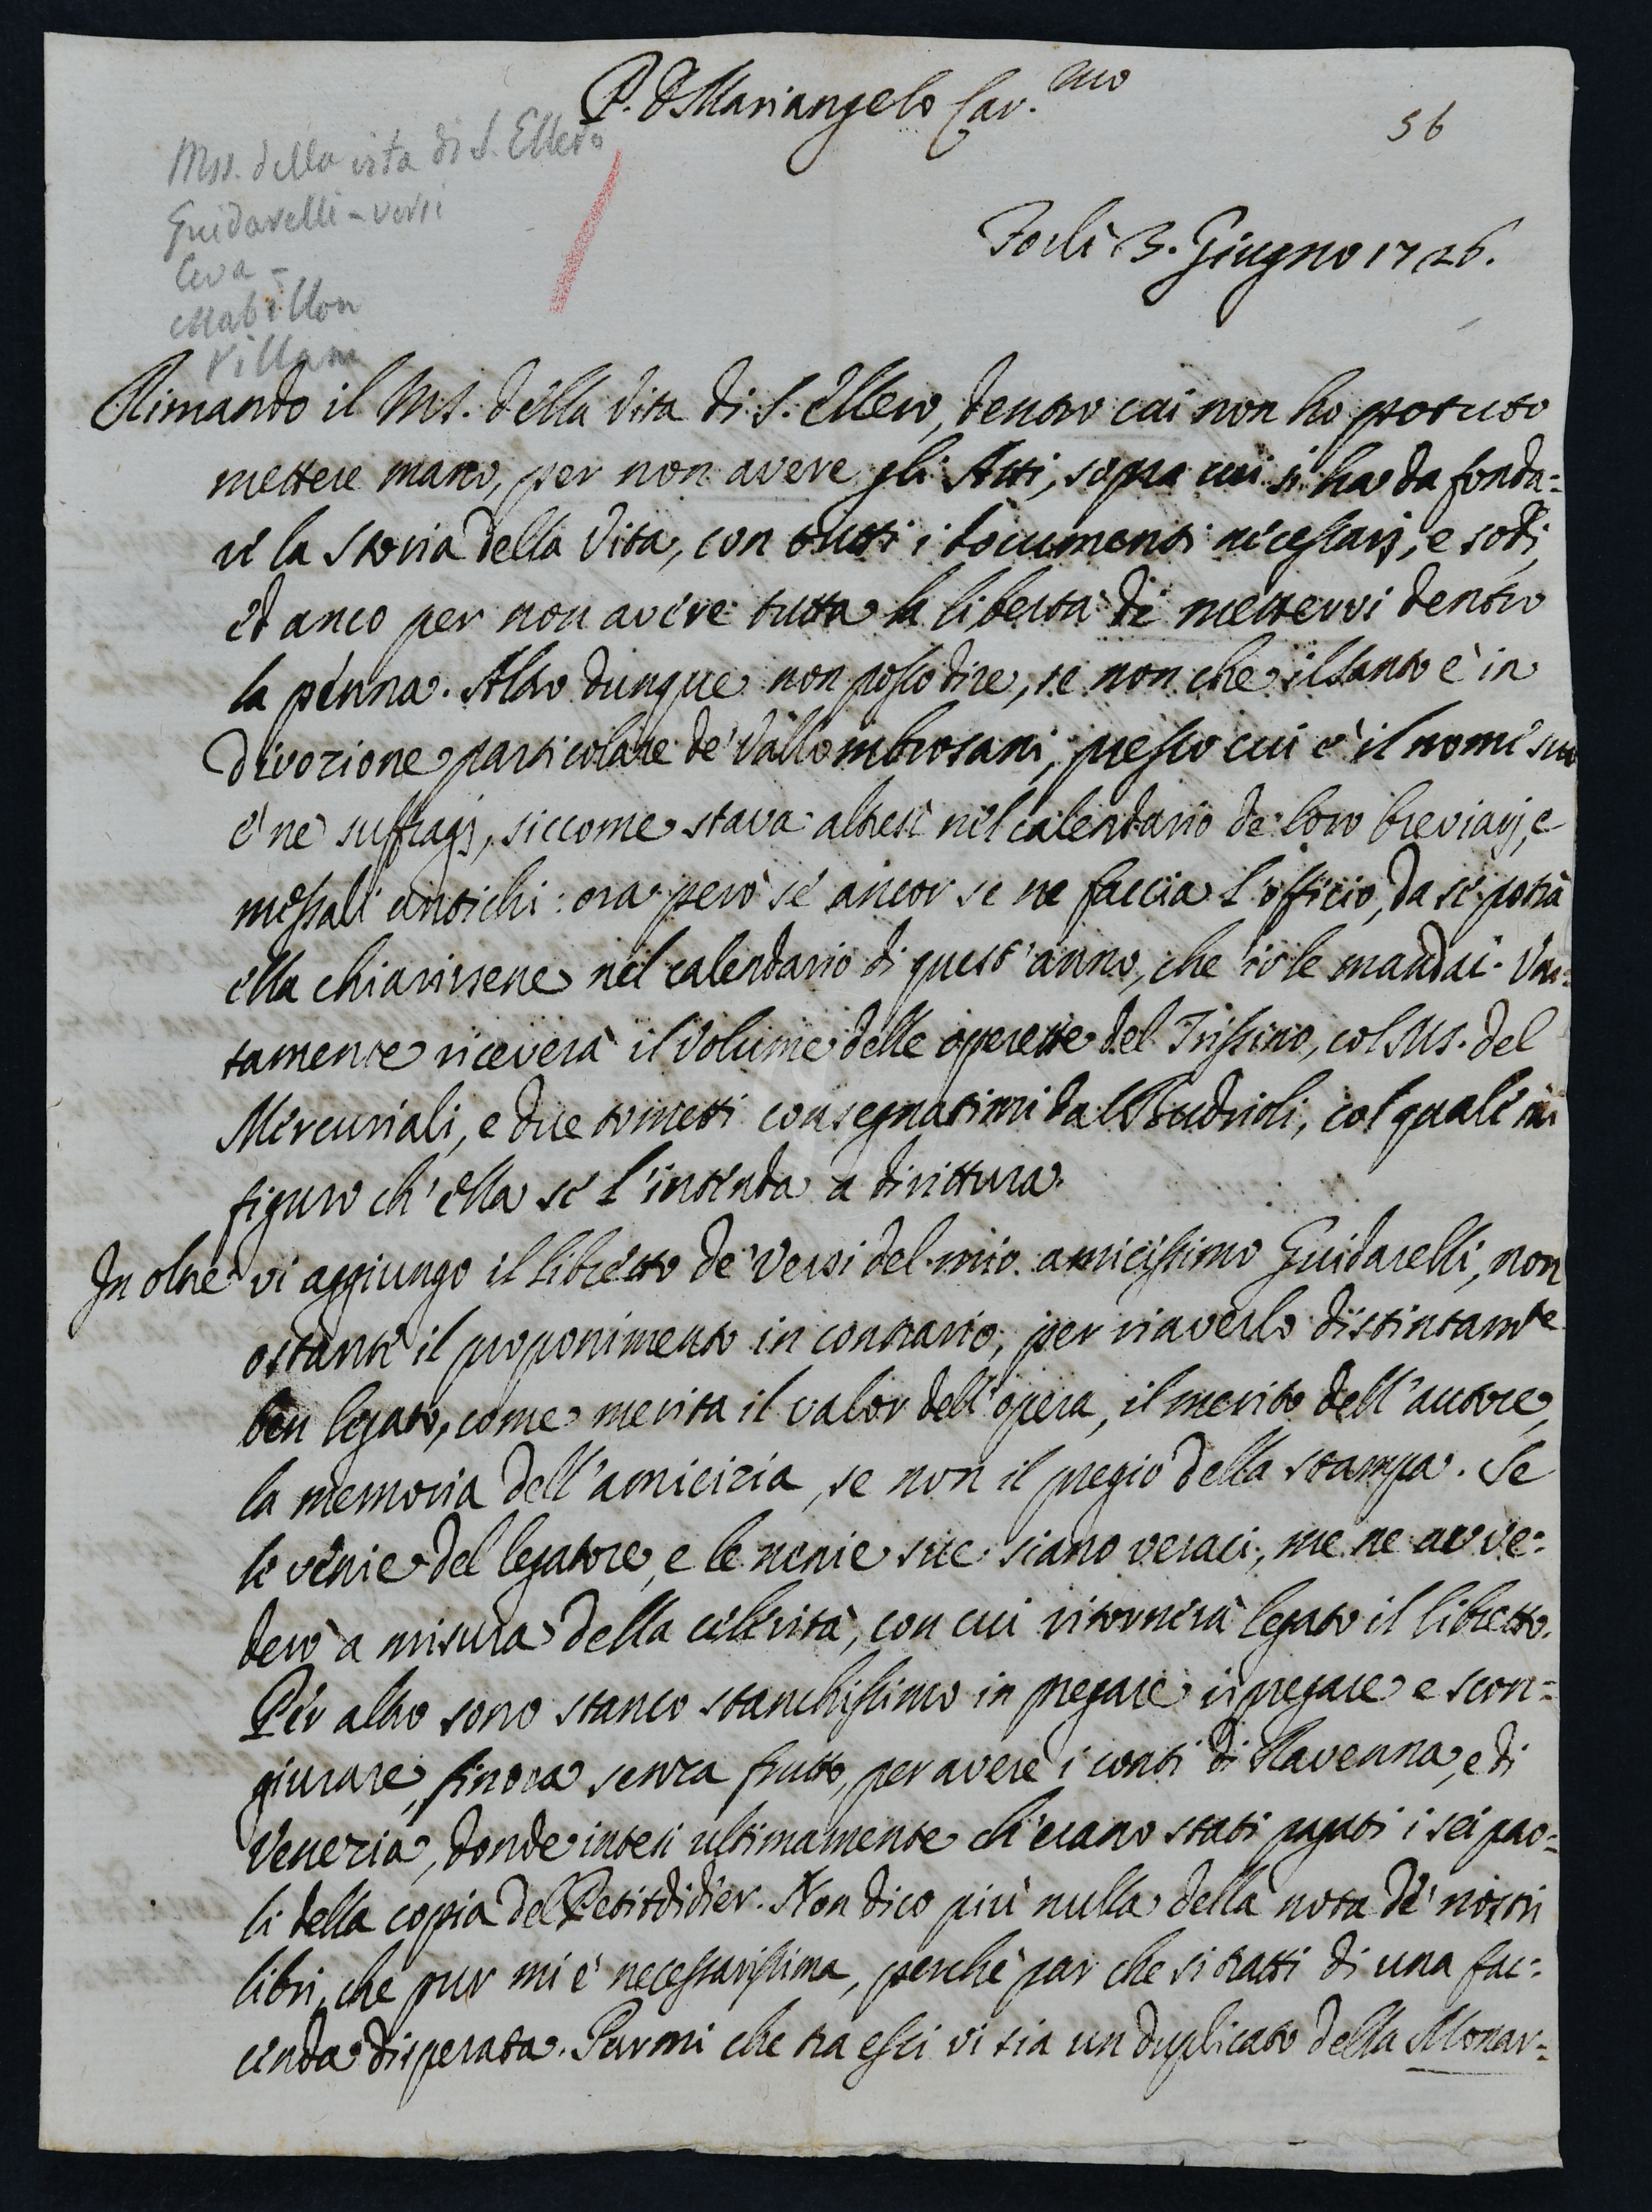 P. D. Mariangelo Car.mo
56
Mss. della vita di S. Ellero
Guidarelli - versi
Ceva -
Mabillon
Villani
Forlì 3. Giugno 1726.
Rimando il Ms. della Vita di S. Ellero, dentro cui non ho potuto
mettere mano, per non avere gli Atti, sopra cui si ha da fonda=
re la Storia della Vita, con tutti i documenti necessarj, e sodi,
ed anco per non avere tutta la libertà di mettervi dentro
la penna. Altro dunque non posso dire, se non che il santo è in
divozione particolare de' Vallombrosani, presso cui è il nome suo
e' ne' suffragj, siccome stava altresì nel calendario de' loro breviarj, e
messali antichi: ora però se ancor se ne faccia l'officio, da se potrà
ella chiarirsene nel calendario di quest'anno, che io le mandai. Uni=
tamente riceverà il Volume delle operette del Trissino, col Ms. del
Mercuriali, e due tometti consegnatimi dal Budrioli, col quale mi
figuro ch'ella se l'intenda a dirittura.
In oltre vi aggiungo il libretto de' Versi del mio amicissimo Guidarelli, non
ostante il proponimento in contrario, per riaverlo distintamte
ben legato, come merita il valor dell'opera, il merito dell'autore,
la memoria dell'amicizia, se non il pregio della stampa. Se
le venie del legatore, e le nenie sue siano veraci, me ne avve=
derò a misura della celerità, con cui ritornerà legato il libretto.
Per altro sono stanco stanchissimo in pregare ripregare e scon=
giurare, finora senza frutto, per avere i conti di Ravenna, e di
Venezia, donde intesi ultimamente ch'erano stati pagati i sei pao=
li della copia del Petitdidier. Non dico più nulla della nota de' nostri
libri, che pur mi è necessarissima, perchè par che si tratti di una fac=
cenda disperata. Parmi che tra essi vi sia un duplicato della Monar=